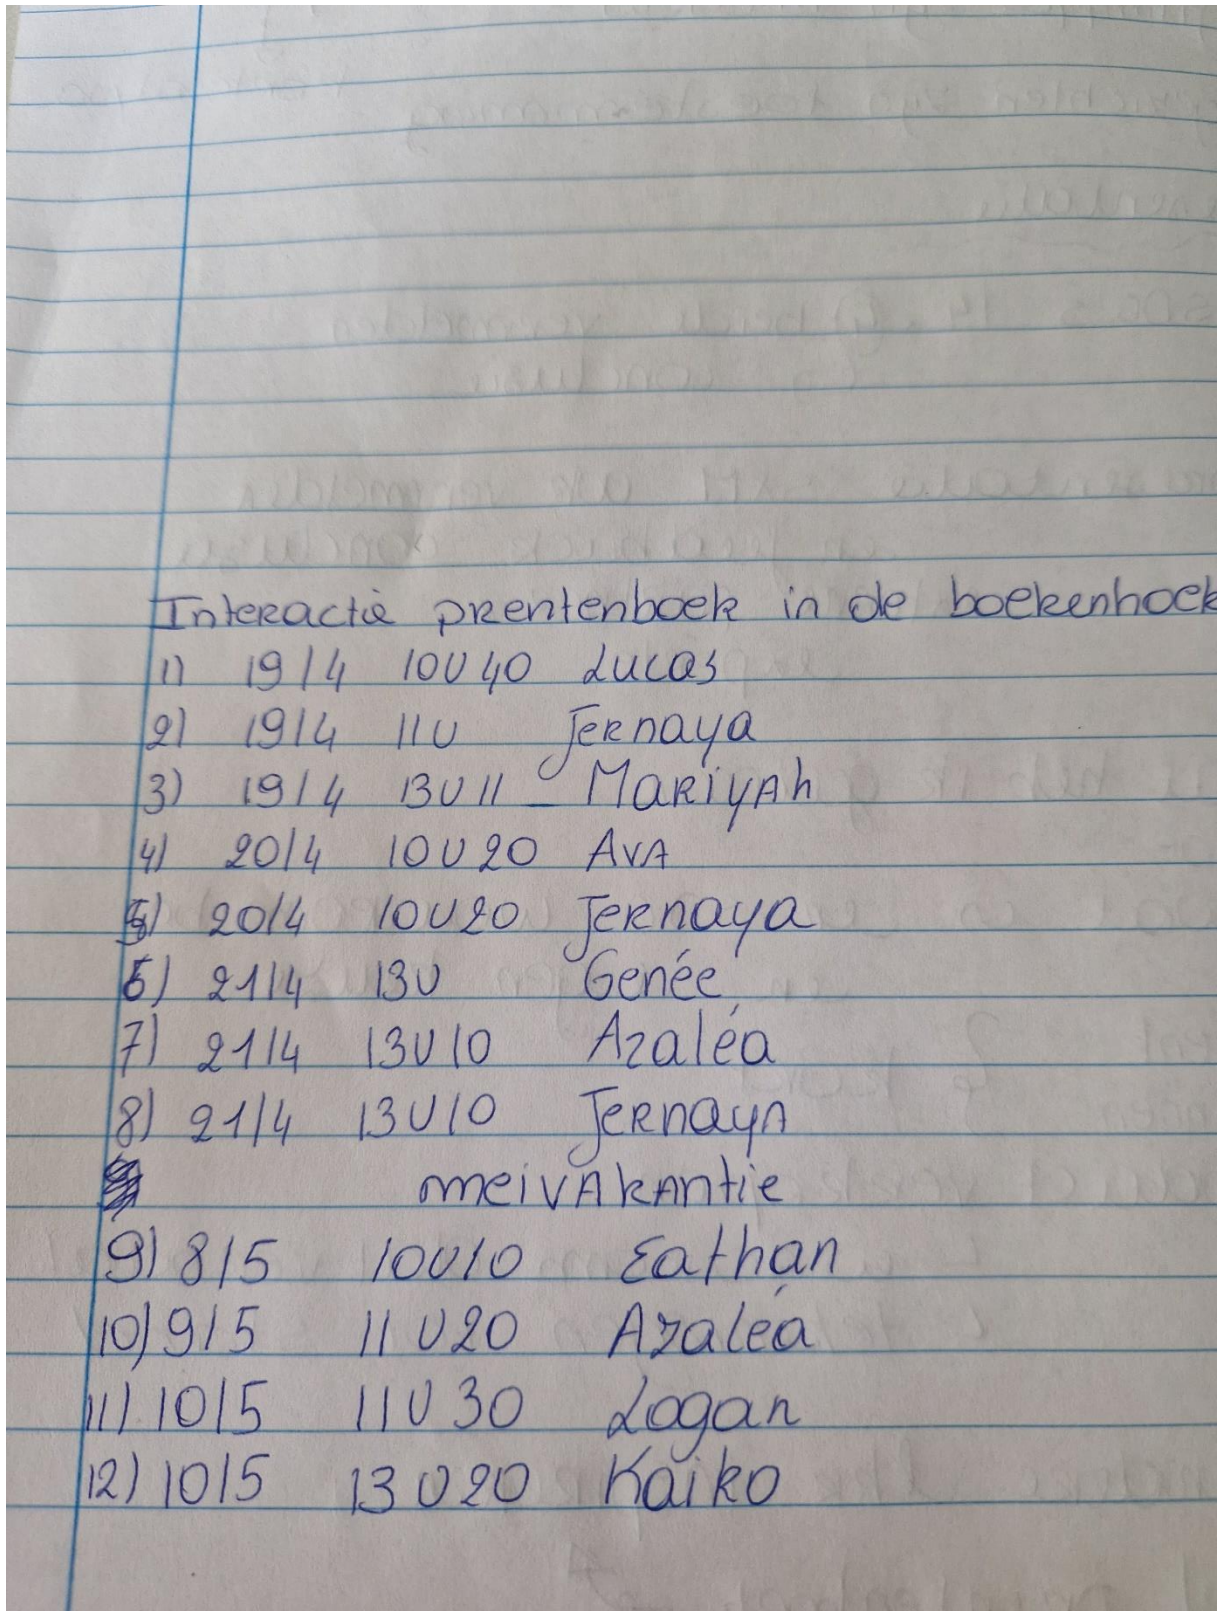 Interactie prentenboek in de boekenhoek
1) 19/4 10U40 Lucas
2) 19/4 11U Jernaya
3) 19/4 13U11 - Mariyah
4) 20/4 10U20 Ava
5) 20/4 10U20 Jernaya
6) 21/4 13U Genée
7) 21/4 13U10 Azaléa
8) 21/4 13U10 Jernaya
meivakantie
9) 8/5 10U10 Eathan
10) 9/5 11U20 Azaléa
11) 10/5 11U30 Logan
12) 10/5 13U20 Kaiko